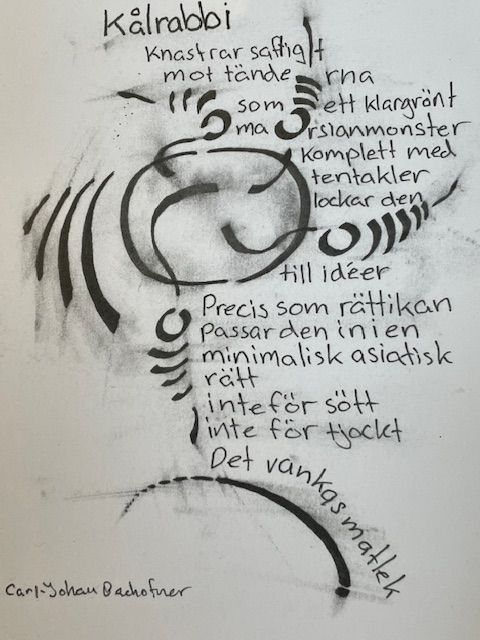 Kålrabbi
Knastrar saftigt
mot tänderna
som ett klargrönt
marsianmonster
komplett med
tentakler
lockar den
till idéer
Precis som rättikan
passar den in i en
minimalisk asiatisk
rätt
inte för sött
inte för tjockt
Det vankas matlek
Carl-Johan Bachofner